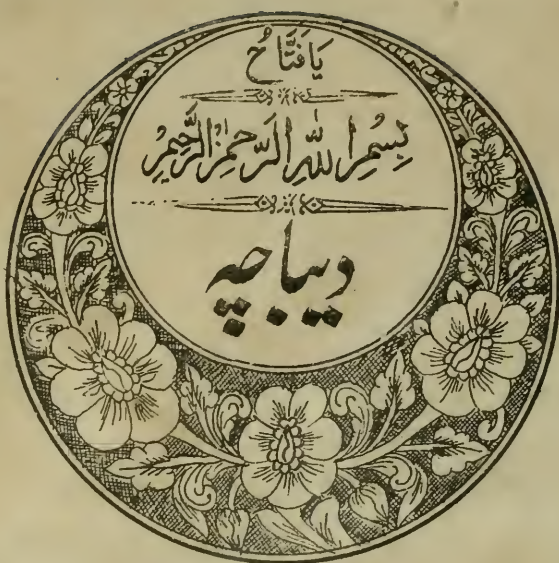 يَا فَتَّاحُ
بِسْمِ اللّٰهِ الرَّحْمٰنِ الرَّحِيْمِ
دیباچہ